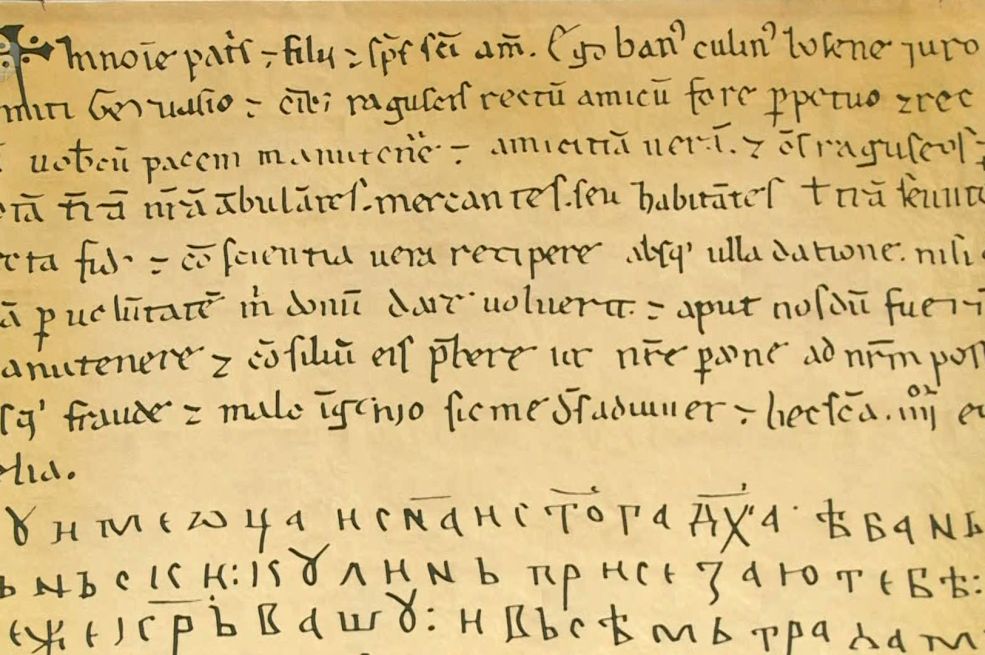 ✝ In noīe pat̄s ⁊ filij ⁊ sp̄s sc̄i am̄. Ego ban' culin' bosene juro
miti Geruasio ⁊ ciīb; raguseis rectū amicū fore ꝑpetuo ⁊ rec
uob̄cū pacem manuteñe ⁊ amicitiā uerā. ⁊ om̄s raguseos
t̄rā n̄rā ābulātes. mercantes. seu habitātes
cta fid' ⁊ cō scientia uera recipere absq' ulla datione. nisi
ꝑ uolūtatē m̄ donū dare uoluerit ⁊ aput nos dū fueri
anutenere ⁊ cōsiliū eis p̄bere ut nr̄e ꝑsone ad nr̄m pos
sq' fraude ⁊ malo īgenio sic me d̄s adiuuet ⁊ hec sc̄a .iiij.or eu
elia.
ꙋ имє ѡца и сн҃а и ст҃ога дх҃а· ѣ бань
ьньски: кꙋлинь присєзаю тєбѣ:
єжє крьвашꙋ: и вьсѣмь градам